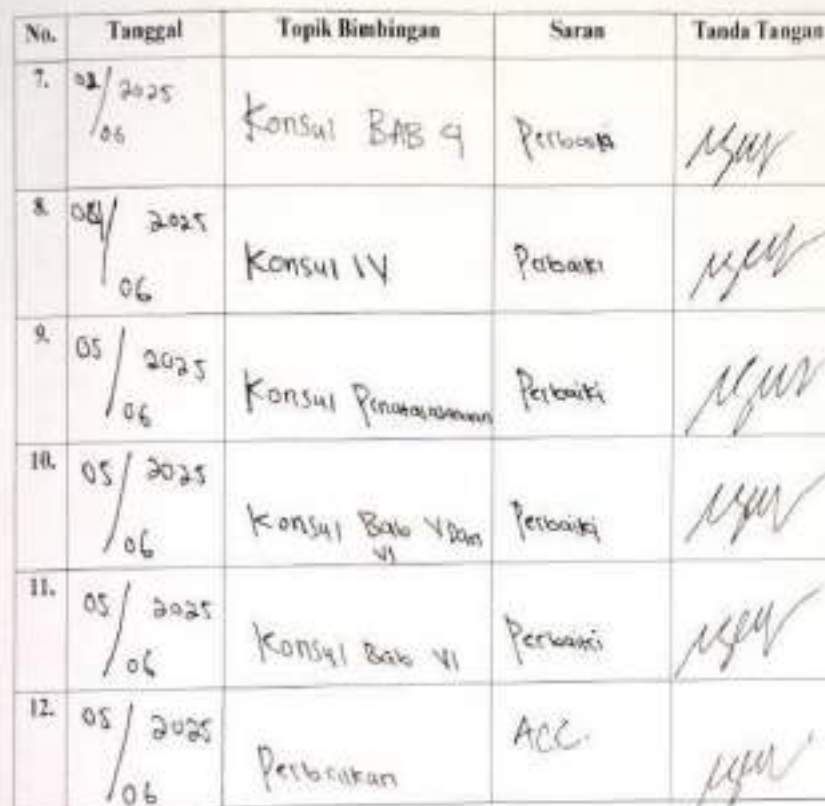 No. Tanggal Topik Bimbingan Saran Tanda Tangan
7. 2025
/06 Konsul BAB 4 Perbaiki
8. 2025
/06 Konsul IV Perbaiki
9. 05/2025
/06 Konsul Perbaiki
10. 05/2025
/06 Konsul Bab V Dan Perbaiki
VI
11. 05/2025
/06 Konsul Bab VI Perbaiki
12. 05/2025 ACC.
/06 Perbaikan